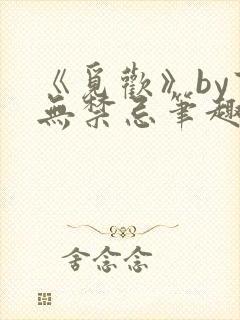 《觅歡》by
無禁忌筆趣
舍念念